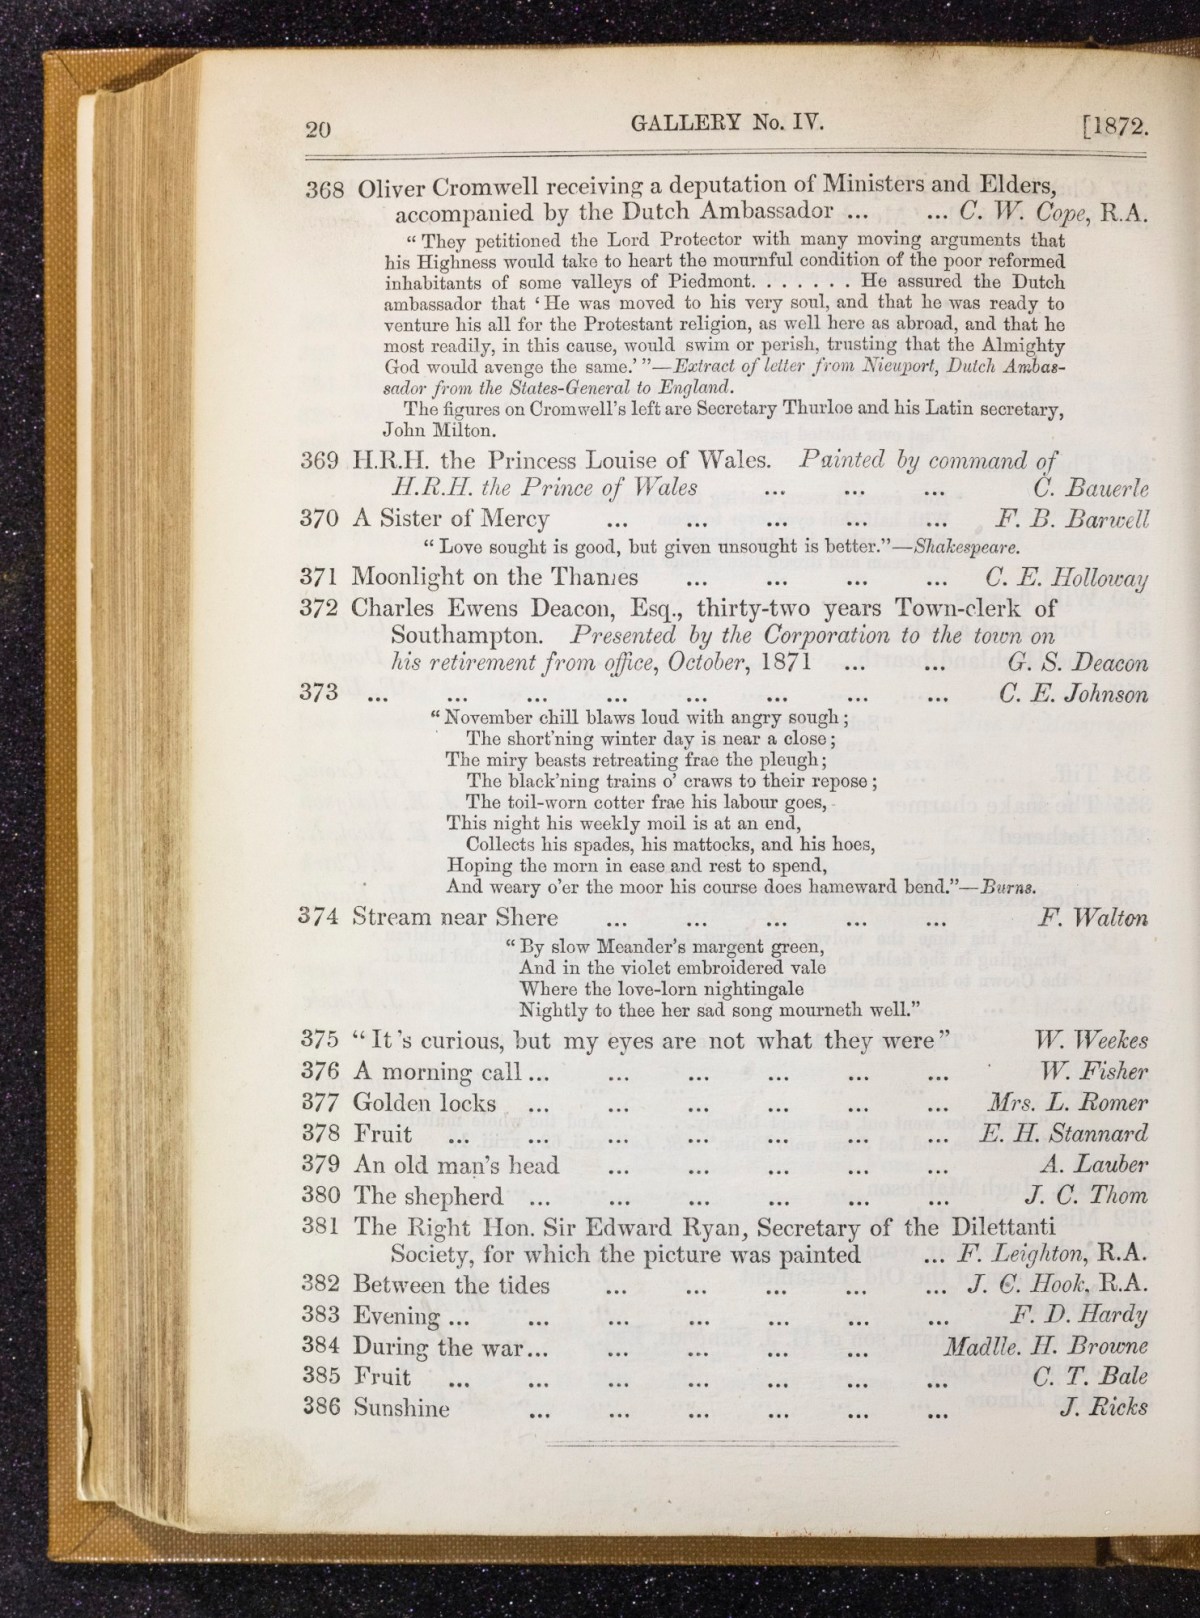 20 GALLERY No. IV. [1872.
368 Oliver Cromwell receiving a deputation of Ministers and Elders,
accompanied by the Dutch Ambassador ... ... C. W. Cope, R.A.
“ They petitioned the Lord Protector with many moving arguments that
his Highness would take to heart the mournful condition of the poor reformed
inhabitants of some valleys of Piedmont. . . . . . . He assured the Dutch
ambassador that ‘ He was moved to his very soul, and that he was ready to
venture his all for the Protestant religion, as well here as abroad, and that he
most readily, in this cause, would swim or perish, trusting that the Almighty
God would avenge the same.’ ”—Extract of letter from Nieuport, Dutch Ambas-
sador from the States-General to England.
The figures on Cromwell’s left are Secretary Thurloe and his Latin secretary,
John Milton.
369 H.R.H. the Princess Louise of Wales. Painted by command of
H.R.H. the Prince of Wales ... ... ... C. Bauerle
370 A Sister of Mercy ... ... ... ... ... F. B. Barwell
“ Love sought is good, but given unsought is better.”—Shakespeare.
371 Moonlight on the Thames ... ... ... ... C. E. Holloway
372 Charles Ewens Deacon, Esq., thirty-two years Town-clerk of
Southampton. Presented by the Corporation to the town on
his retirement from office, October, 1871 ... ... G. S. Deacon
373 ... ... ... ... ... ... ... ... C. E. Johnson
“ November chill blaws loud with angry sough ;
The short’ning winter day is near a close ;
The miry beasts retreating frae the pleugh ;
The black’ning trains o’ craws to their repose ;
The toil-worn cotter frae his labour goes,
This night his weekly moil is at an end,
Collects his spades, his mattocks, and his hoes,
Hoping the morn in ease and rest to spend,
And weary o’er the moor his course does hameward bend.”—Burns.
374 Stream near Shere ... ... ... ... ... F. Walton
“ By slow Meander’s margent green,
And in the violet embroidered vale
Where the love-lorn nightingale
Nightly to thee her sad song mourneth well.”
375 “ It ’s curious, but my eyes are not what they were ” W. Weekes
376 A morning call ... ... ... ... ... ... W. Fisher
377 Golden locks ... ... ... ... ... ... Mrs. L. Romer
378 Fruit ... ... ... ... ... ... ... E. H. Stannard
379 An old man’s head ... ... ... ... ... A. Lauber
380 The shepherd ... ... ... ... ... ... J. C. Thom
381 The Right Hon. Sir Edward Ryan, Secretary of the Dilettanti
Society, for which the picture was painted ... F. Leighton, R.A.
382 Between the tides ... ... ... ... ... J. C. Hook, R.A.
383 Evening ... ... ... ... ... ... ... F. D. Hardy
384 During the war ... ... ... ... ... Madlle. H. Browne
385 Fruit ... ... ... ... ... ... ... C. T. Bale
386 Sunshine ... ... ... ... ... ... J. Ricks